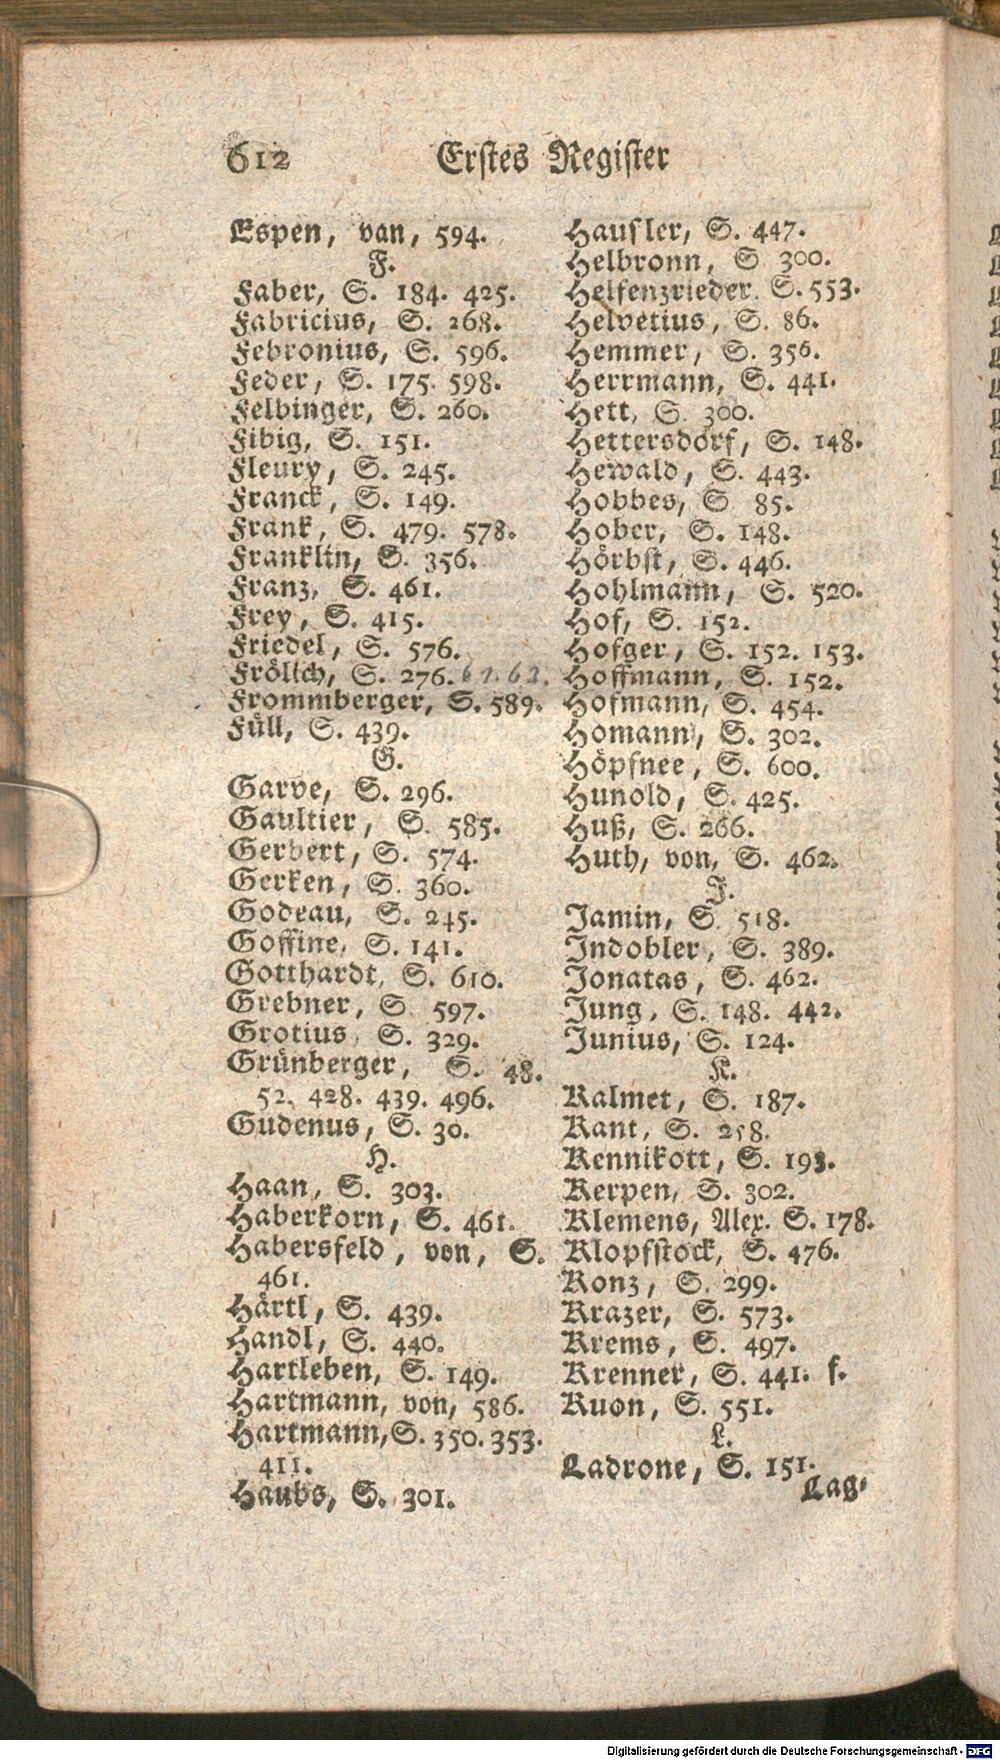 612 Erstes Register
Espen, van, 594.
F.
Faber, S. 184. 425.
Fabricius, S. 268.
Febronius, S. 596.
Feder, S. 175. 598.
Felbinger, S. 260.
Fibig, S. 151.
Fleury, S. 245.
Franck, S. 149.
Frank, S. 479. 578.
Franklin, S. 356.
Franz, S. 461.
Frey, S. 415.
Friedel, S. 576.
Frölich, S. 276. 61. 63.
Frommberger, S. 589.
Füll, S. 439.
G.
Garve, S. 296.
Gaultier, S. 585.
Gerbert, S. 574.
Gerken, S. 360.
Godeau, S. 245.
Goffine, S. 141.
Gotthardt, S. 610.
Grebner, S. 597.
Grotius, S. 329.
Grünberger, S. 48.
52. 428. 439. 496.
Gudenus, S. 30.
H.
Haan, S. 303.
Haberkorn, S. 461.
Habersfeld, von, S.
461.
Härtl, S. 439.
Handl, S. 440.
Hartleben, S. 149.
Hartmann, von, 586.
Hartmann, S. 350. 353.
411.
Haubs, S. 301.
Hausler, S. 447.
Helbronn, S 300.
Helfenzrieder, S. 553.
Helvetius, S. 86.
Hemmer, S. 356.
Herrmann, S. 441.
Hett, S. 300.
Hettersdorf, S. 148.
Hewald, S. 443.
Hobbes, S 85.
Hober, S. 148.
Hörbst, S. 446.
Hohlmann, S. 520.
Hof, S. 152.
Hofger, S. 152. 153.
Hoffmann, S. 152.
Hofmann, S. 454.
Homann, S. 302.
Höpfnee, S. 600.
Hunold, S. 425.
Huß, S. 266.
Huth, von, S. 462.
J.
Jamin, S. 518.
Indobler, S. 389.
Jonatas, S. 462.
Jung, S. 148. 442.
Junius, S. 124.
K.
Kalmet, S. 187.
Kant, S. 258.
Kennikott, S. 193.
Kerpen, S. 302.
Klemens, Alex. S. 178.
Klopfstock, S. 476.
Konz, S. 299.
Krazer, S. 573.
Krems, S. 497.
Krenner, S. 441. f.
Kuon, S. 551.
L.
Ladrone, S. 151.
Laß-
Digitalisierung gefördert durch die Deutsche Forschungsgemeinschaft - DFG